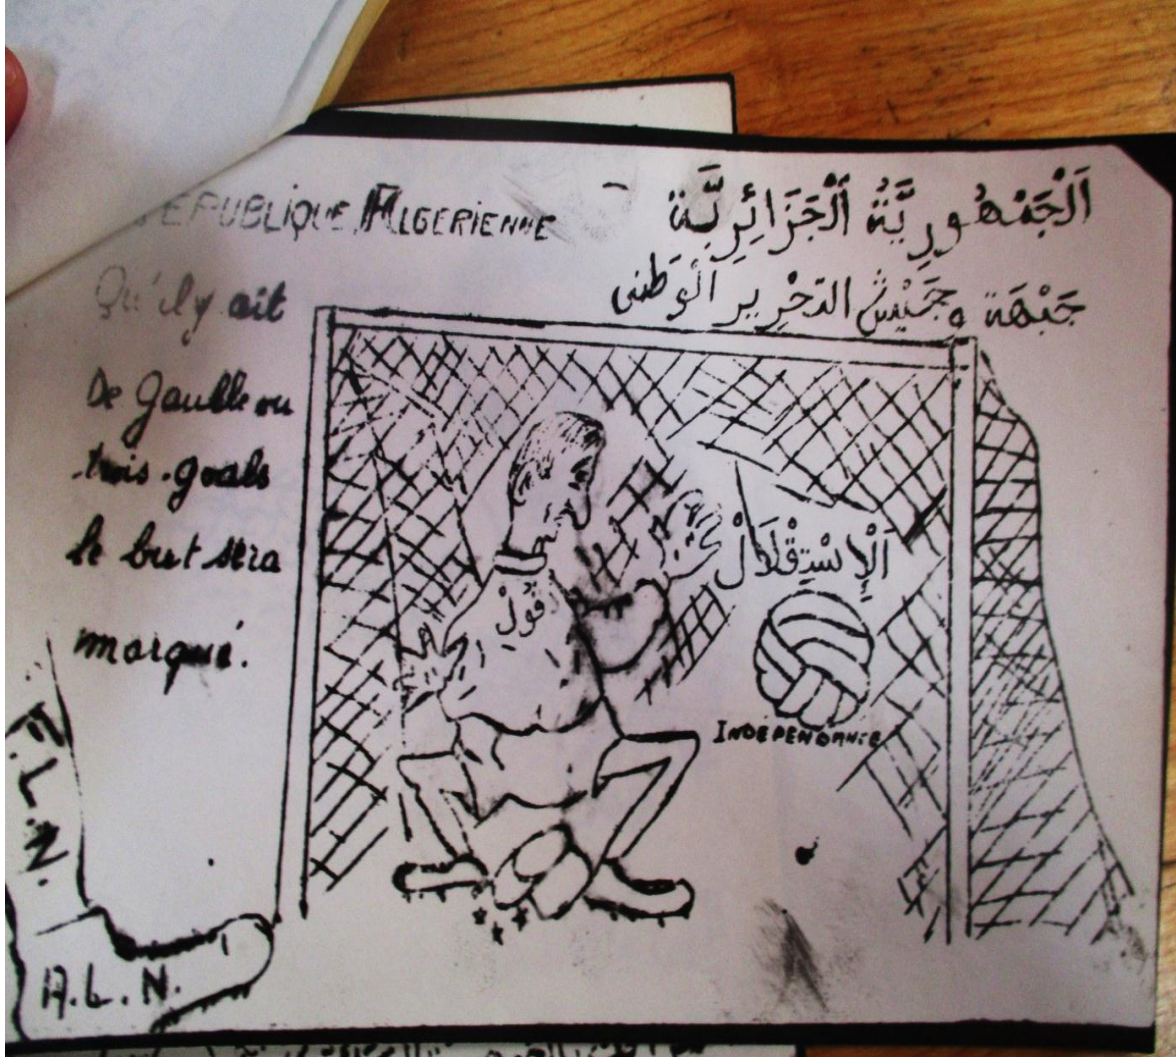 REPUBLIQUE ALGERIENNE
اَلْجَمْهُورِيَّةُ اَلْجَزَائِرِيَّة
جَبْهَة وجَيْش التحْرِير الْوَطَني
Qu'il y ait
De Gaulle ou
trois goals
le but sera
marqué.
اَلْإِسْتِقْلَالْ
قُولْ
INDEPENDANCE
F.L.N.
A.L.N.